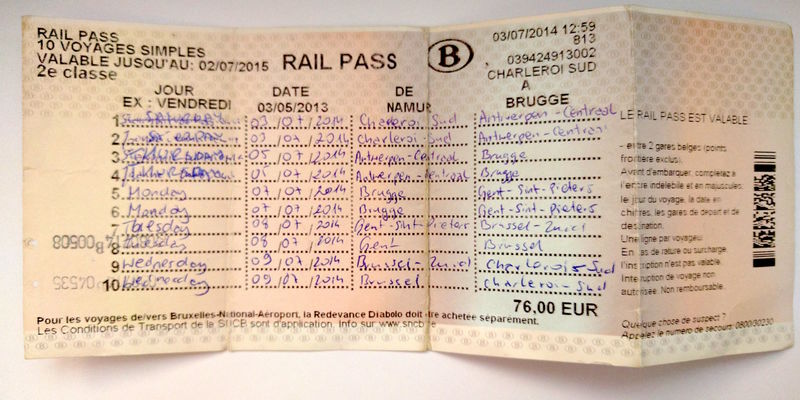 RAIL PASS
10 VOYAGES SIMPLES
VALABLE JUSQU'AU: 02/07/2015
2e classe
RAIL PASS
B
03/07/2014 12:59
813
039424913002
CHARLEROI SUD
JOUR DATE DE A
EX : VENDREDI 03/05/2013 NAMUR BRUGGE
1 03/07/2014 Charleroi-Sud Antwerpen-Centraal
2 /07/2014 Charleroi-Sud Antwerpen-Centraal
3 05/07/2014 Antwerpen-Centraal Brugge
4 /07/2014 Antwerpen-Centraal Brugge
5 Monday 07/07/2014 Brugge Gent-Sint-Pieters
6 Monday 07/07/2014 Brugge Gent-Sint-Pieters
7 Tuesday 08/07/2014 Gent-Sint-Pieters Brussel-Zuid
8 Tuesday 08/07/2014 Gent Brussel
9 Wednesday 09/07/2014 Brussel-Zuid Charleroi-Sud
10 Wednesday 09/07/2014 Brussel Charleroi-Sud
76,00 EUR
Pour les voyages de/vers Bruxelles-National-Aéroport, la Redevance Diabolo doit être achetée séparement.
Les Conditions de Transport de la SNCB sont d'application. Info sur www.sncb.be
LE RAIL PASS EST VALABLE
- entre 2 gares belges (points
frontière exclus).
Avant d'embarquer, completez à
l'encre indélebile et en majuscules:
le jour du voyage, la date en
chiffres, les gares de départ et de
destination.
Une ligne par voyageur
En cas de rature ou surcharge,
l'inscription n'est pas valable.
Interruption de voyage non
autorisée. Non remboursable.
Quelque chose de suspect ?
Appelez le numero de secours: 0800/30230
B00508
04535